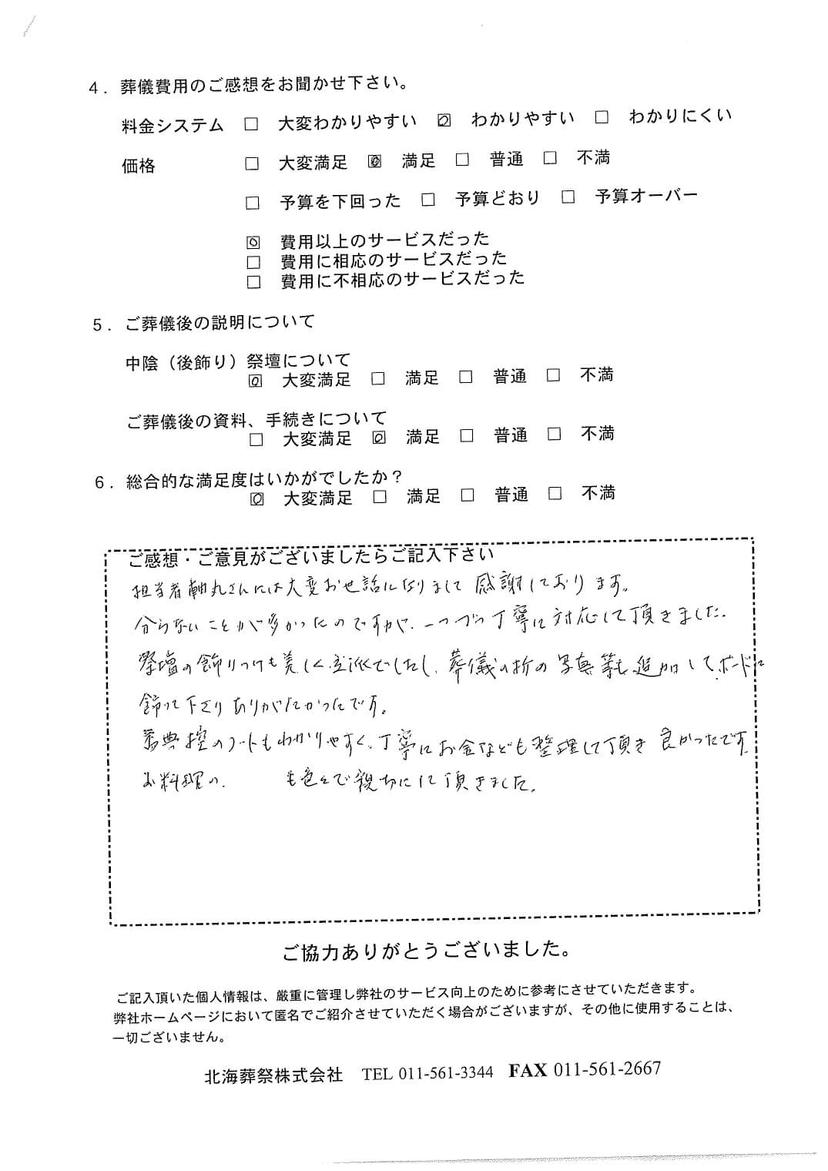 4．葬儀費用のご感想をお聞かせ下さい。
料金システム □ 大変わかりやすい ☑ わかりやすい □ わかりにくい
価格 □ 大変満足 ☑ 満足 □ 普通 □ 不満
□ 予算を下回った □ 予算どおり □ 予算オーバー
☑ 費用以上のサービスだった
□ 費用に相応のサービスだった
□ 費用に不相応のサービスだった
5．ご葬儀後の説明について
中陰（後飾り）祭壇について
☑ 大変満足 □ 満足 □ 普通 □ 不満
ご葬儀後の資料、手続きについて
□ 大変満足 ☑ 満足 □ 普通 □ 不満
6．総合的な満足度はいかがでしたか？
☑ 大変満足 □ 満足 □ 普通 □ 不満
ご感想・ご意見がございましたらご記入下さい
担当者軸丸さんには大変お世話になりまして感謝しております。
分らないことが多かったのですが、一つづつ丁寧に対応して頂きました。
祭壇の飾りつけも美しく立派でしたし、葬儀の折の写真等も追加してボードに
飾って下さりありがたかったです。
香典控のノートもわかりやすく、丁寧にお金なども整理して頂き良かったです
お料理の、 も色々で親切にして頂きました。
ご協力ありがとうございました。
ご記入頂いた個人情報は、厳重に管理し弊社のサービス向上のために参考にさせていただきます。
弊社ホームページにおいて匿名でご紹介させていただく場合がございますが、その他に使用することは、
一切ございません。
北海葬祭株式会社 TEL 011-561-3344 FAX 011-561-2667